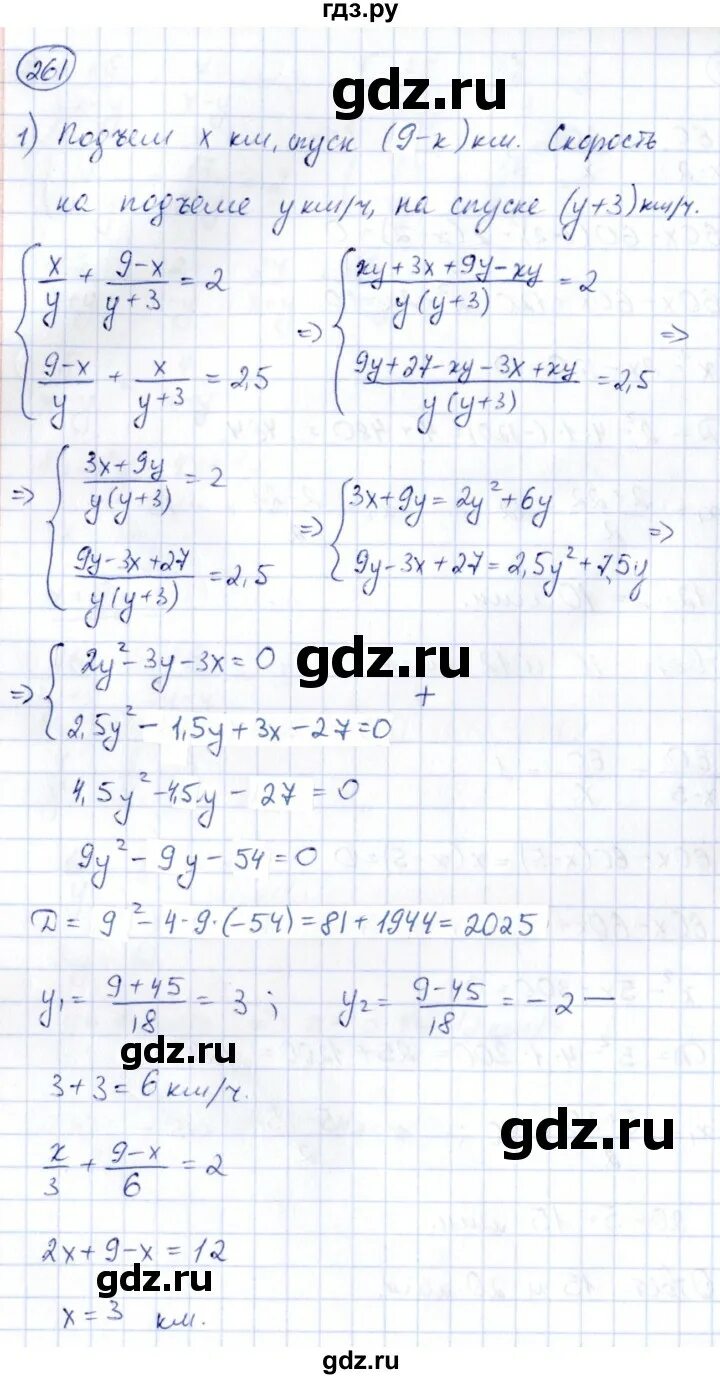 гдз.ру
261
gdz.ru
1) Подъем x км, спуск (9-x) км. Скорость
на подъеме y км/ч, на спуске (y+3) км/ч.
{ x/y + (9-x)/(y+3) = 2 => { (xy+3x+9y-xy)/(y(y+3)) = 2 =>
(9-x)/y + x/(y+3) = 2,5 (9y+27-xy-3x+xy)/(y(y+3)) = 2,5
=> { (3x+9y)/(y(y+3)) = 2 => { 3x+9y = 2y²+6y =>
(9y-3x+27)/(y(y+3)) = 2,5 9y-3x+27 = 2,5y²+7,5y
gdz.ru
=> { 2y²-3y-3x=0 +
2,5y²-1,5y+3x-27=0
4,5y²-4,5y-27=0
9y²-9y-54=0
D = 9²-4·9·(-54)=81+1944=2025
y₁ = (9+45)/18 = 3; y₂ = (9-45)/18 = -2 —
gdz.ru
3+3=6 км/ч.
gdz.ru
x/3 + (9-x)/6 = 2
2x+9-x=12
gdz.ru
x=3 км.
gdz.ru